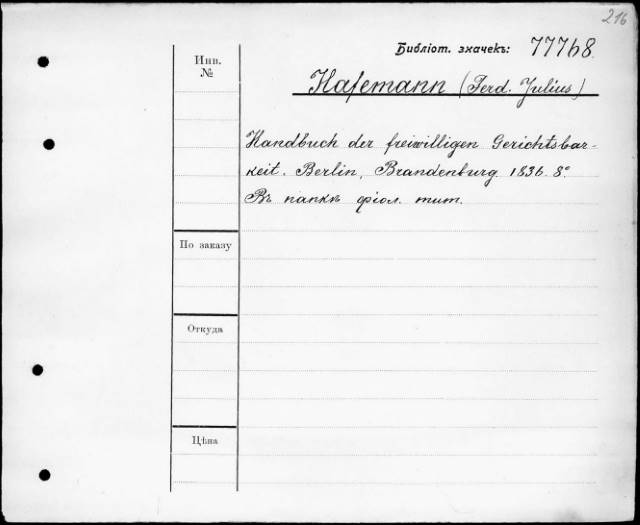 216
Библіот. значекъ: 77768.
Инв.
№
Hasemann (Ferd. Julius)
Handbuch der freiwilligen Gerichtsbar-
keit. Berlin, Brandenburg 1836. 8°
Въ папкѣ фіол. тит.
По заказу
Откуда
Цѣна